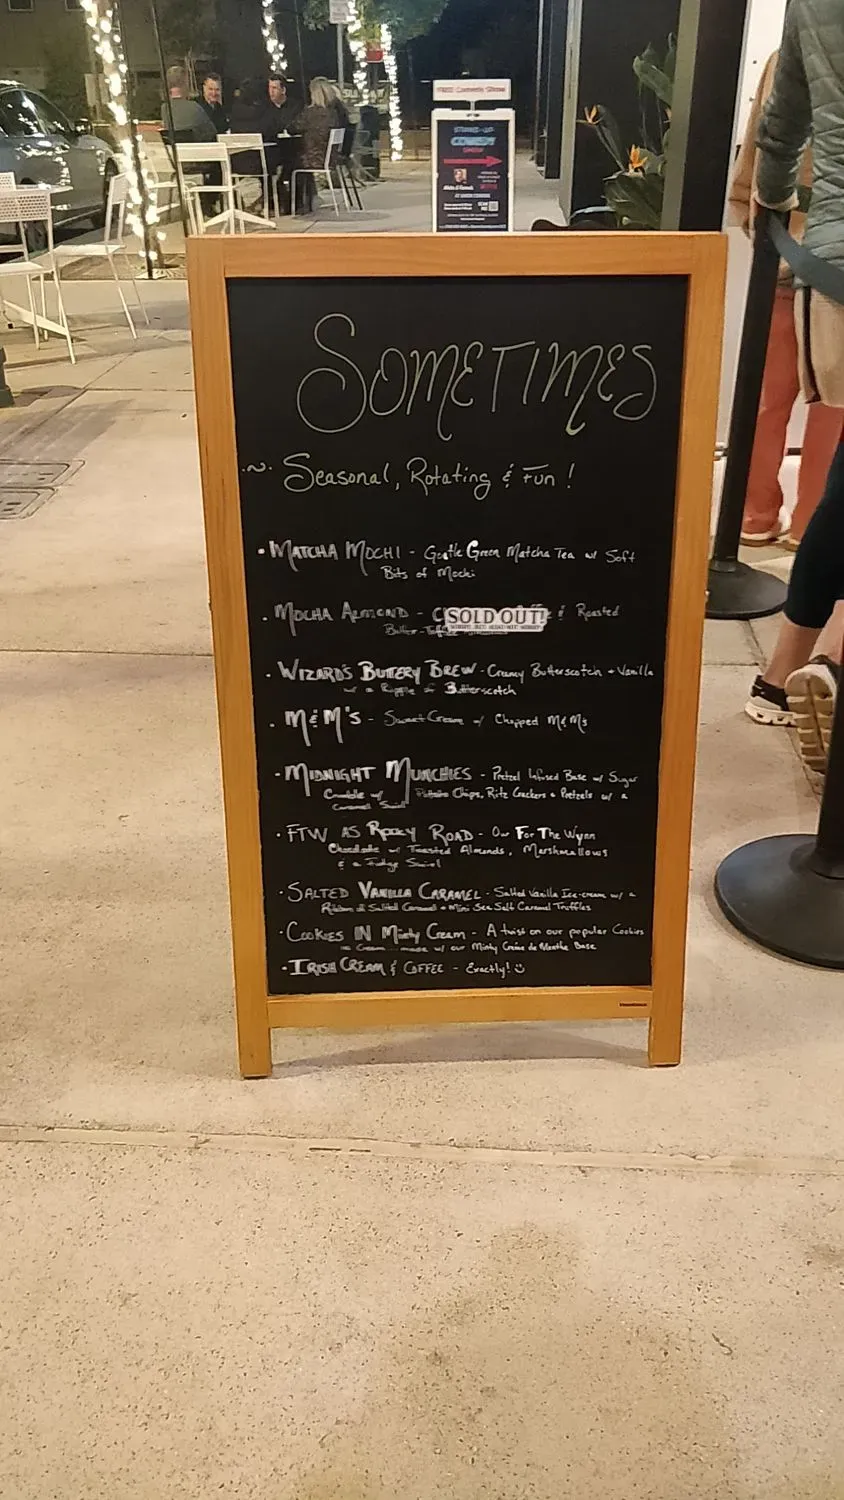 FREE Comedy Show
STAND-UP
COMEDY
SHOW
SOMETIMES
~ Seasonal, Rotating & Fun!
• MATCHA MOCHI - Gentle Green Matcha Tea w/ Soft
Bits of Mochi
• MOCHA ALMOND - SOLD OUT! & Roasted
Butter-Toffee
• WIZARD'S BUTTERY BREW - Creamy Butterscotch + Vanilla
w/ a Ripple of Butterscotch
• M&M'S - Sweet Cream w/ Chopped M&M's
• MIDNIGHT MUNCHIES - Pretzel Infused Base w/ Sugar
Crumble w/ Potato Chips, Ritz Crackers + Pretzels w/ a
Caramel Swirl
• FTW AS ROCKY ROAD - Our For The Wynn
Chocolate w/ Toasted Almonds, Marshmallows
& a Fudge Swirl
• SALTED VANILLA CARAMEL - Salted Vanilla Ice-cream w/ a
Ribbon of Salted Caramel + Mini Sea Salt Caramel Truffles
• COOKIES IN Minty Cream - A twist on our popular Cookies
in Cream made w/ our Minty Crème de Menthe Base
• IRISH CREAM & COFFEE - Exactly! ☺